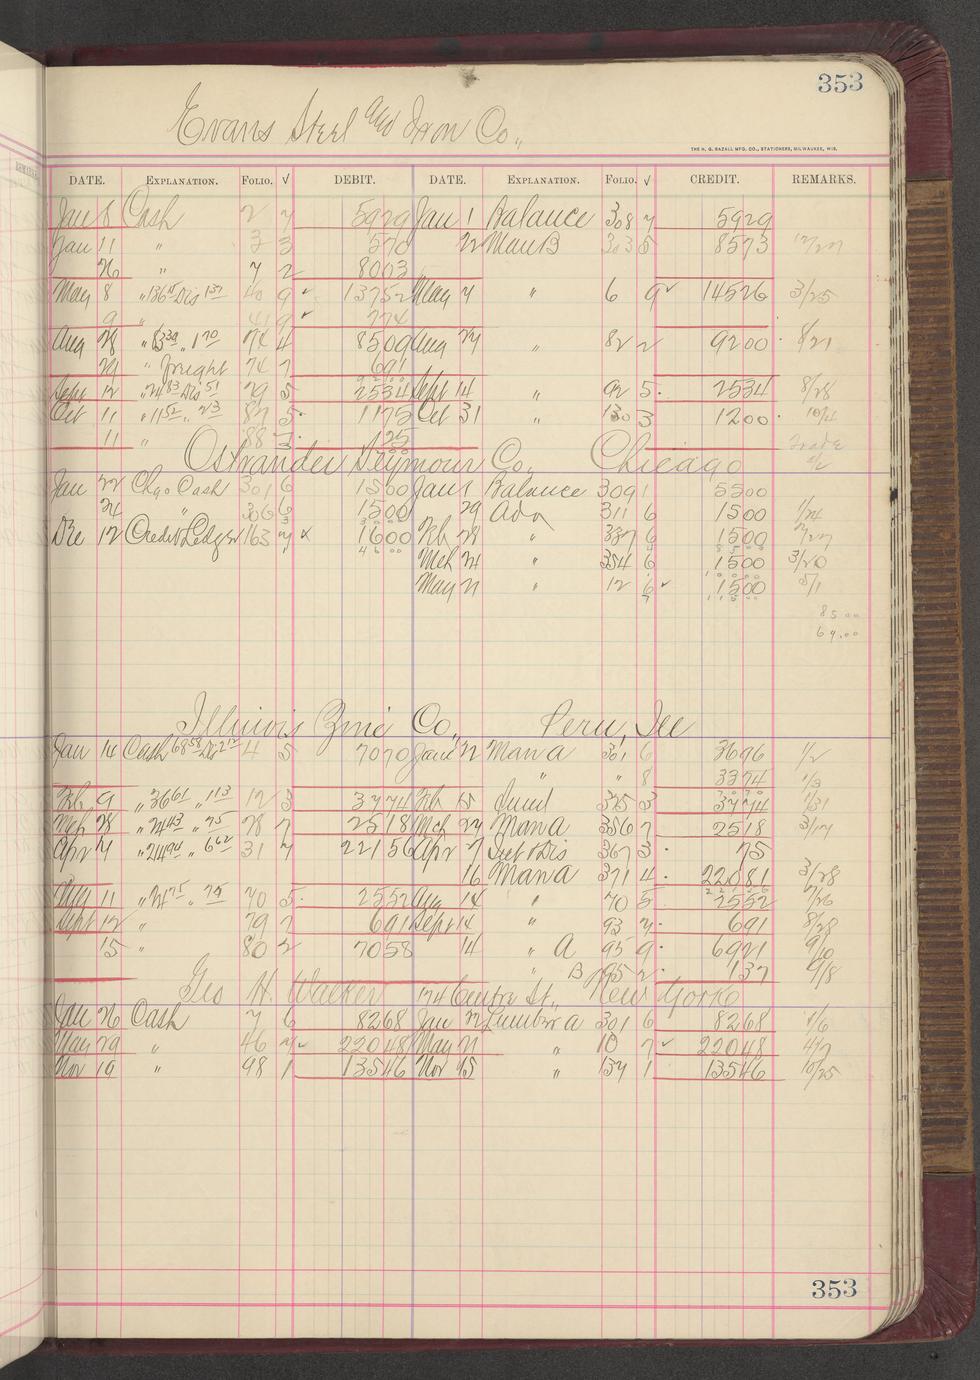 353
Evans Steel and Iron Co.,
THE H. G. RAZALL MFG. CO., STATIONERS, MILWAUKEE, WIS.
DATE. EXPLANATION. FOLIO. √ DEBIT. DATE. EXPLANATION. FOLIO. √ CREDIT. REMARKS.
Jan 8 Cash 2 7 5929 Jan 1 Balance 308 7 5929
Jan 11 " 3 3 570 22 Man B 303 5 8573 12/27
26 " 7 2 8003
May 8 " 136 15 Dis 137 40 9 ✓ 13752 May 7 " 6 9 ✓ 14526 3/25
9 " 41 9 ✓ 774
Aug 28 " 83 39 " 1 70 74 4 8509 Aug 27 " 82 2 9200 8/21
29 " Freight 74 7 691
9200
Sept 12 " 24 83 Dis 51 79 5 2534 Sept 14 " 92 5 2534 8/28
Oct 11 " 11 52 " 23 87 5 1175 Oct 31 " 130 3 1200 10/4
11 " 88 7 25
Ostrander Seymour Co., Chicago
Jan 22 Chgo Cash 301 6 1500 Jan 1 Balance 309 1 5500
24 " 306 6 1500 29 Adv 311 6 1500 1/24
3000
Dec 12 Credit Ledger 163 7 x 1600 Feb 28 " 337 6 1500 2/27
4600 8500
Mch 24 " 354 6 1500 3/20
10000
May 21 " 12 6 ✓ 1500 5/1
11500
8500
69.00
Illinois Zinc Co., Peru, Ill
Jan 14 Cash 68 58 Dis 2 12 4 5 7070 Jan 22 Man A 301 6 3696 1/2
" " 8 3374 1/3
7070
Feb 9 " 36 61 " 1 13 12 3 3774 Feb 15 325 3 3774 1/31
Mch 28 " 24 43 " 75 28 7 2518 Mch 27 Man A 356 7 2518 3/17
Apr 4 " 214 94 " 6 62 31 7 22156 Apr 7 Int & Dis 367 3 75
16 Man A 371 4 22081 3/28
22156
Aug 11 " 24 75 " 75 70 5 2552 Aug 14 " 70 5 2552 7/26
Sept 12 " 79 7 691 Sept 14 " 93 7 691 8/28
15 " 80 2 7058 14 " A 95 9 6921 9/10
" B 95 2 137 9/8
Geo H. Walker 174 Centre St., New York
Jan 26 Cash 7 6 8268 Jan 22 Lumber A 301 6 8268 1/6
May 29 " 46 7 ✓ 22048 May 21 " 10 7 ✓ 22048 4/7
Nov 19 " 98 1 13546 Nov 15 " 137 1 13546 10/25
353